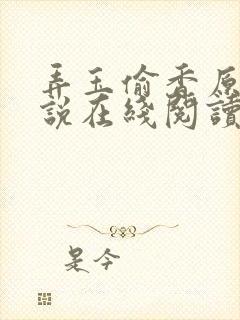 弄玉偷香原
説在綫閱讀
是今